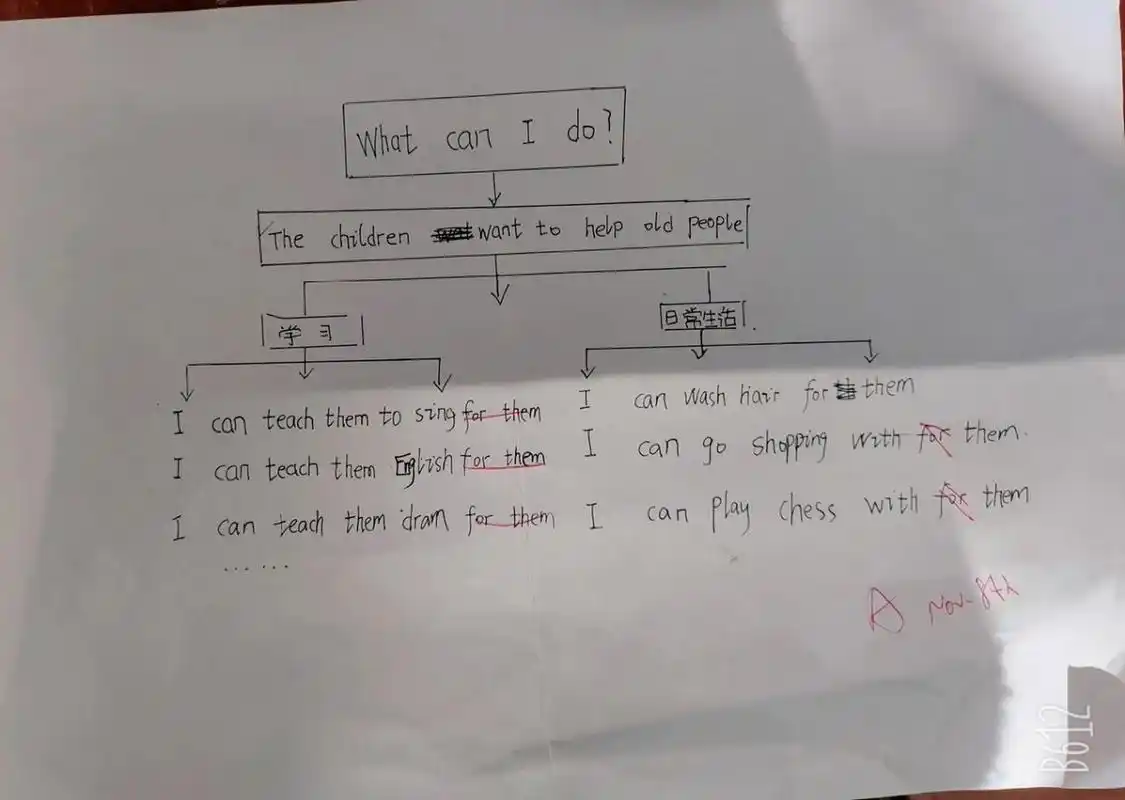 What can I do?
The children want to help old people
学习
日常生活
I can teach them to sing for them
I can teach them English for them
I can teach them dram for them
......
I can wash hair for them
I can go shopping with for them.
I can play chess with for them
A Nov-8th
B612